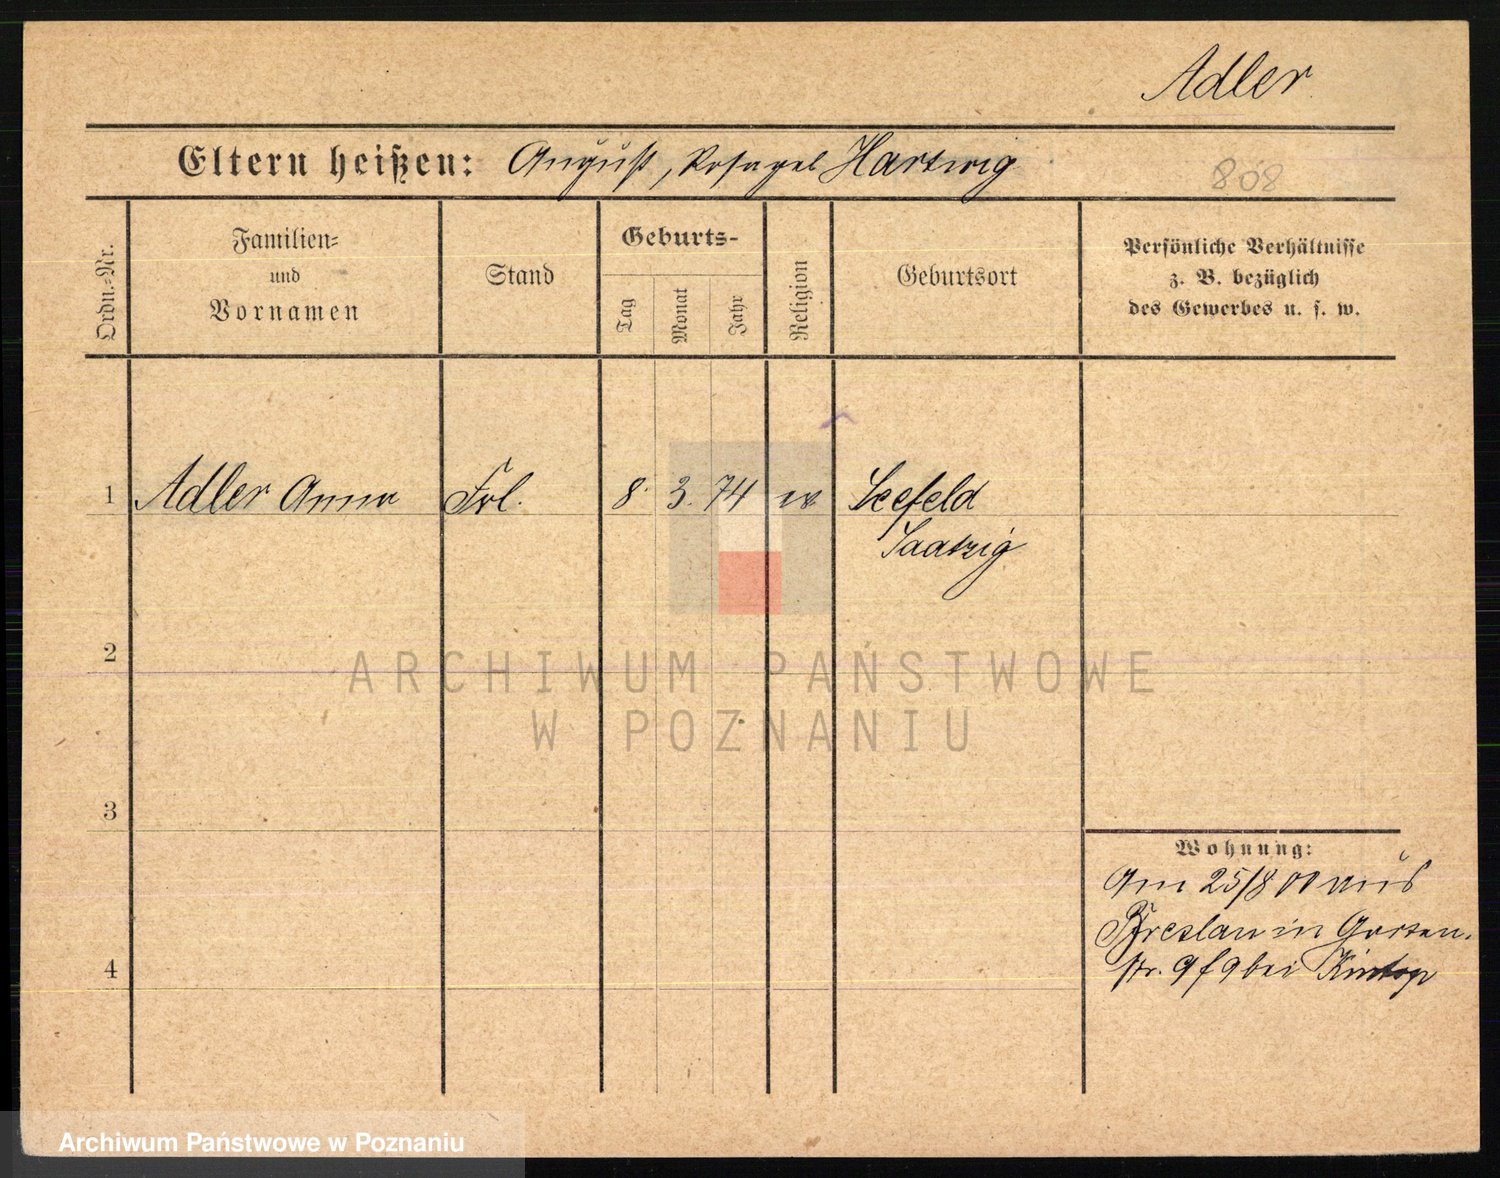 Adler
Eltern heißen: August, Hartwig
808
Ordn.-Nr.
Familien-
und
Vornamen
Stand
Geburts-
Tag
Monat
Jahr
Religion
Geburtsort
Persönliche Verhältnisse
z. B. bezüglich
des Gewerbes u. s. w.
1 Adler Anna Frl. 8. 3. 74 Seefeld
Saatzig
2
ARCHIWUM PAŃSTWOWE
W POZNANIU
3
Wohnung:
Am 25/8 00 aus
Breslau in Garten-
4
str. 9 bei Kintop
Archiwum Państwowe w Poznaniu